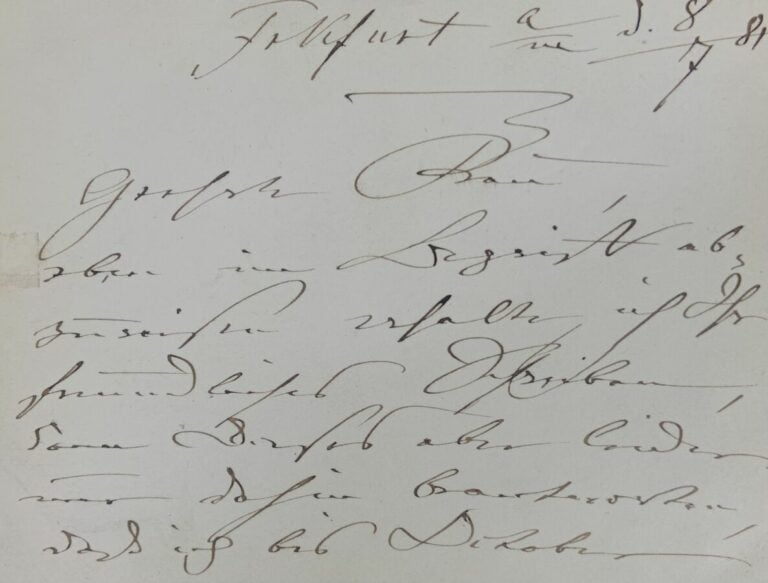 Frkfurt a/m d. 8/7 81
Geehrte Frau,
eben im Begriff ab-
zureisen erhalte ich Ihr
freundliches Schreiben,
kann Dieses aber leider
nur dahin beantworten,
daß ich bis October